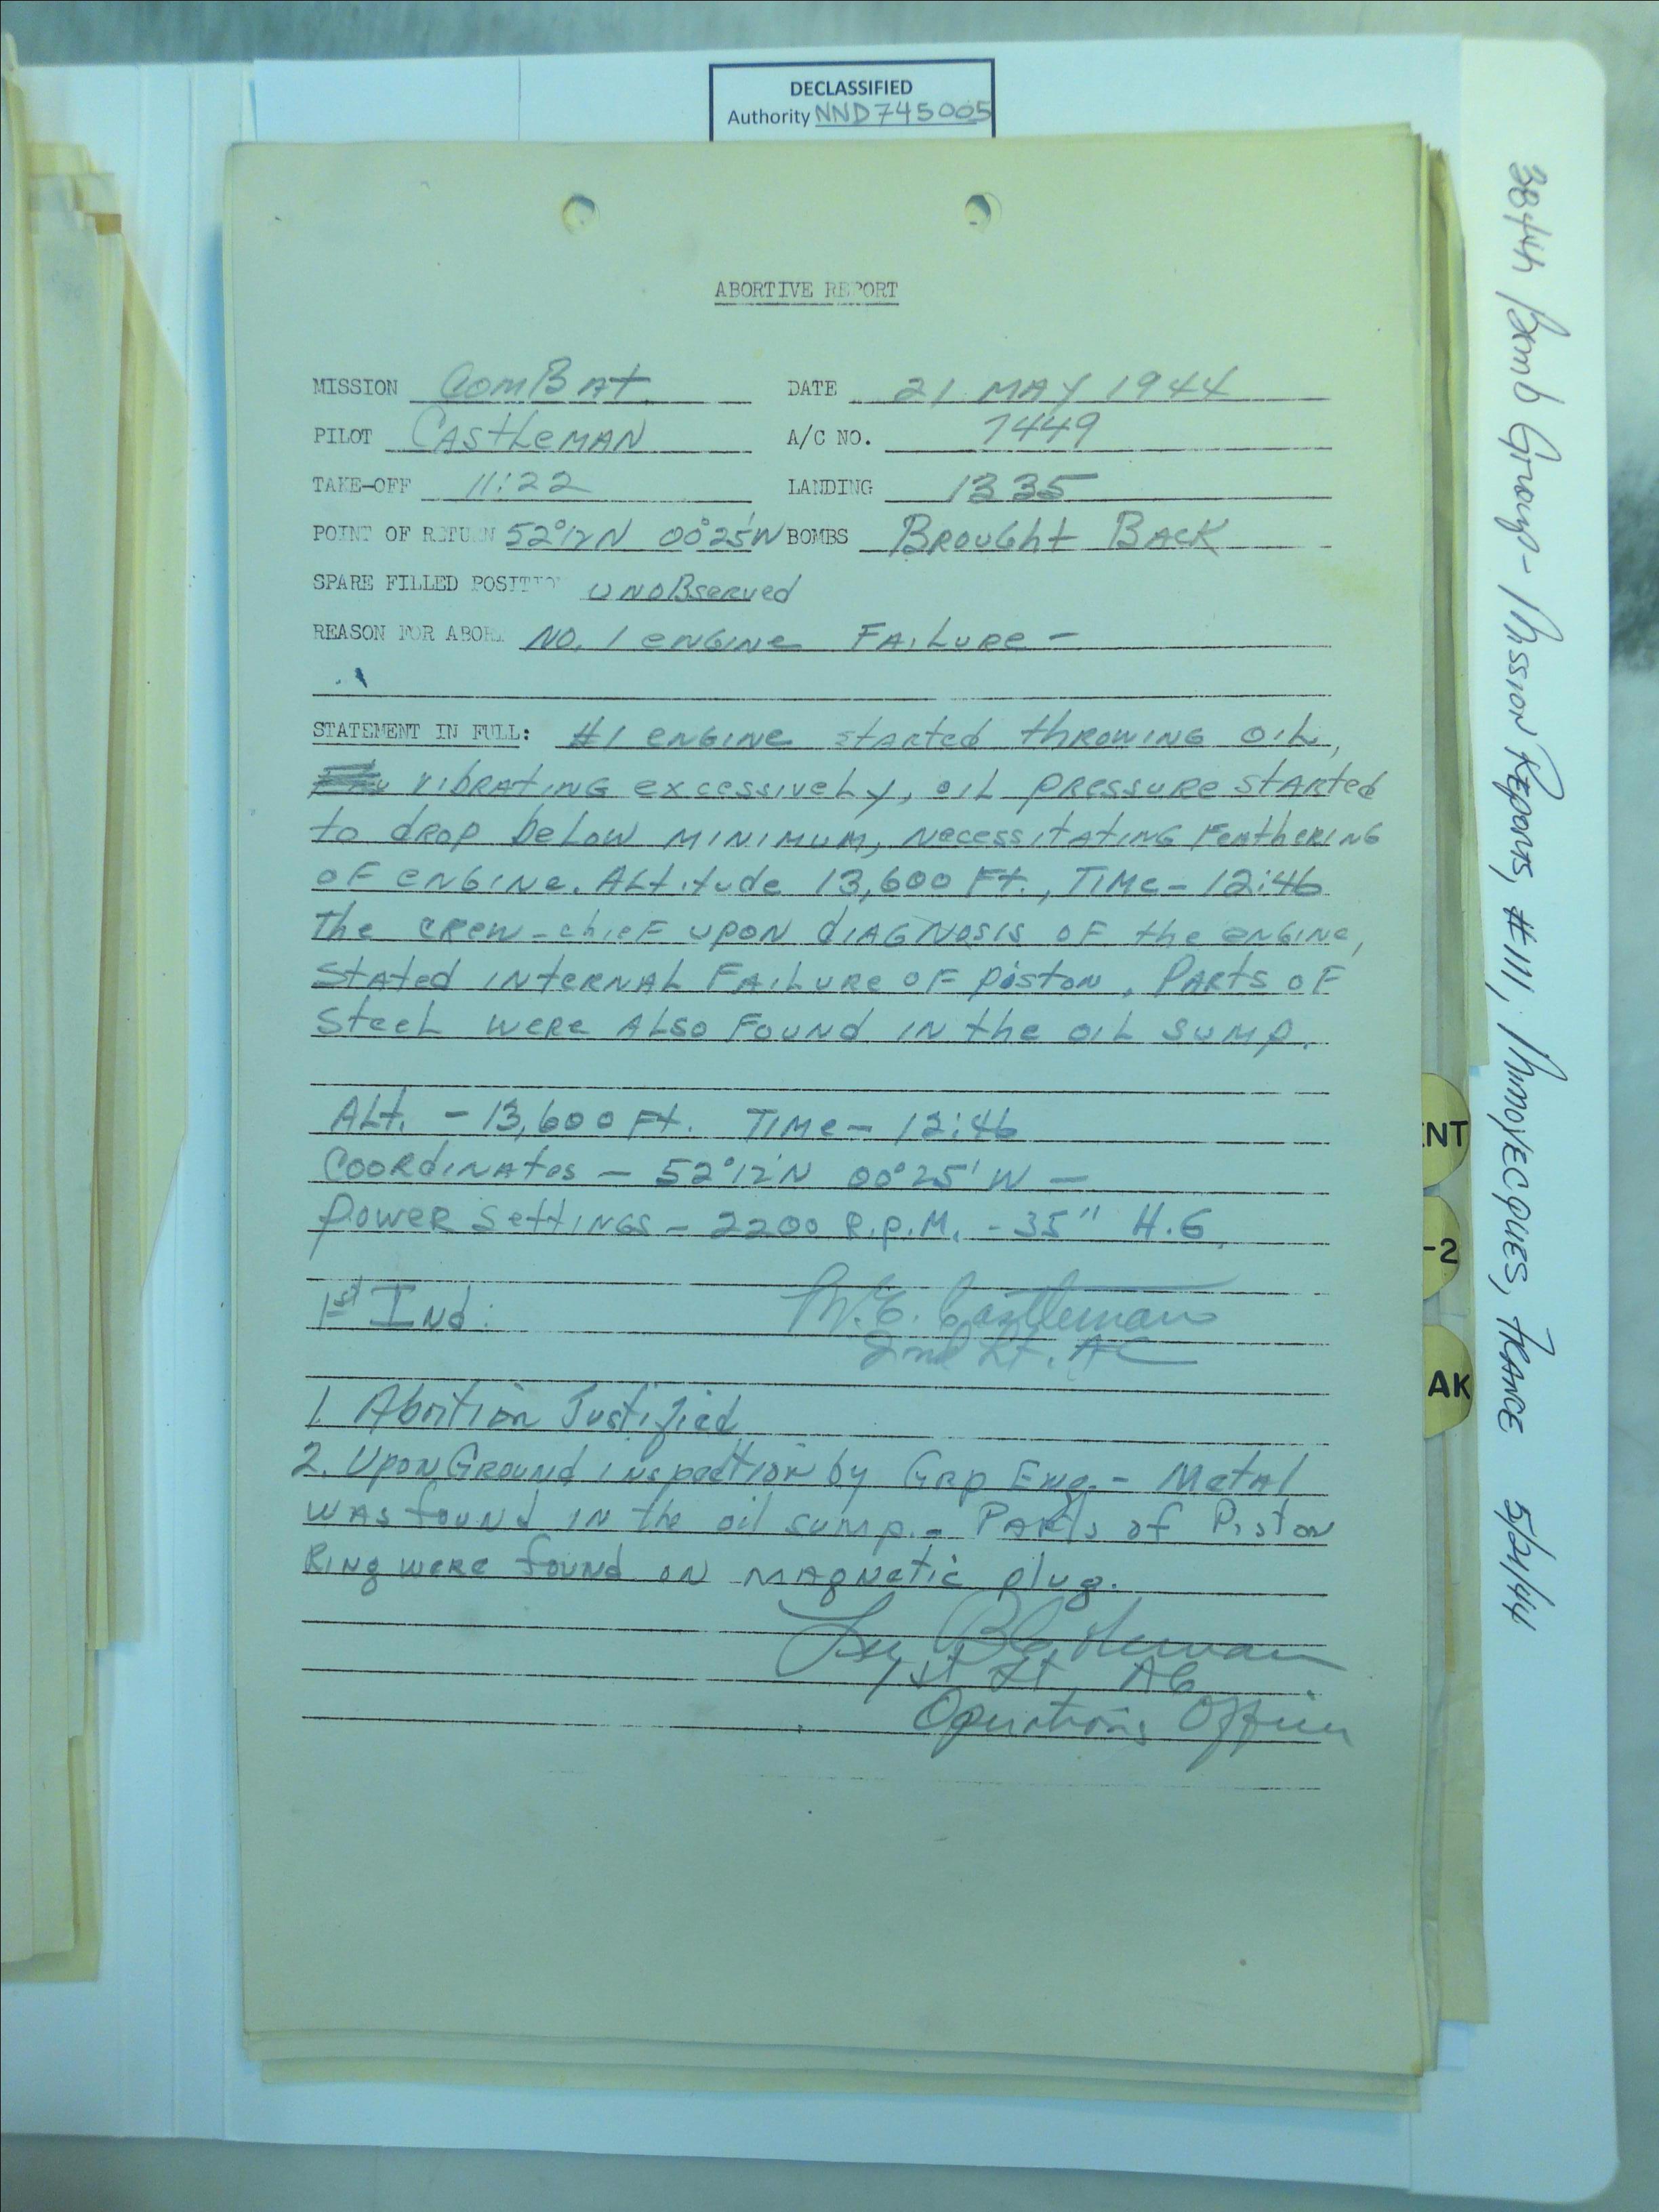 DECLASSIFIED
Authority NND745005
ABORTIVE REPORT
MISSION ComBAt DATE 21 MAY 1944
PILOT CAStLeMAN A/C NO. 7449
TAKE-OFF 11:22 LANDING 1335
POINT OF RETURN 52°12'N 00°25'W BOMBS BROUGht BACK
SPARE FILLED POSITION UNOBserved
REASON FOR ABORT NO. 1 eNGINe FAILURe -
STATEMENT IN FULL: #1 eNGINe stARted thROWING OIL,
vibRAtING excessiveLy, OIL pRessURe stARted
to dROp beLOW MINIMUM, NecessitAtING FeAtheRING
OF eNGINe. ALtitude 13,600 Ft., TIMe - 12:46
the cRew-chieF UpON diAGNosis OF the eNGINe,
Stated INteRNAL FAILURe OF piston. PARts OF
SteeL weRe ALso FOUNd IN the OIL SUMp.
ALt. - 13,600 Ft. TIMe - 12:46
COORdINAtes - 52°12'N 00°25'W -
poweR SettINGS - 2200 R.P.M. - 35" H.G.
1st Ind:
Castleman
2nd Lt. AC
1. Abortion Justified
2. Upon Ground inspection by Grp Eng. - Metal
was found in the oil sump. - Parts of Piston
Ring were found on magnetic plug.
1st Lt AC
Operations Officer
384th Bomb Group - Mission Reports, #111, MimoyECQUES, FRANCE 5/21/44
ENT
-2
AK